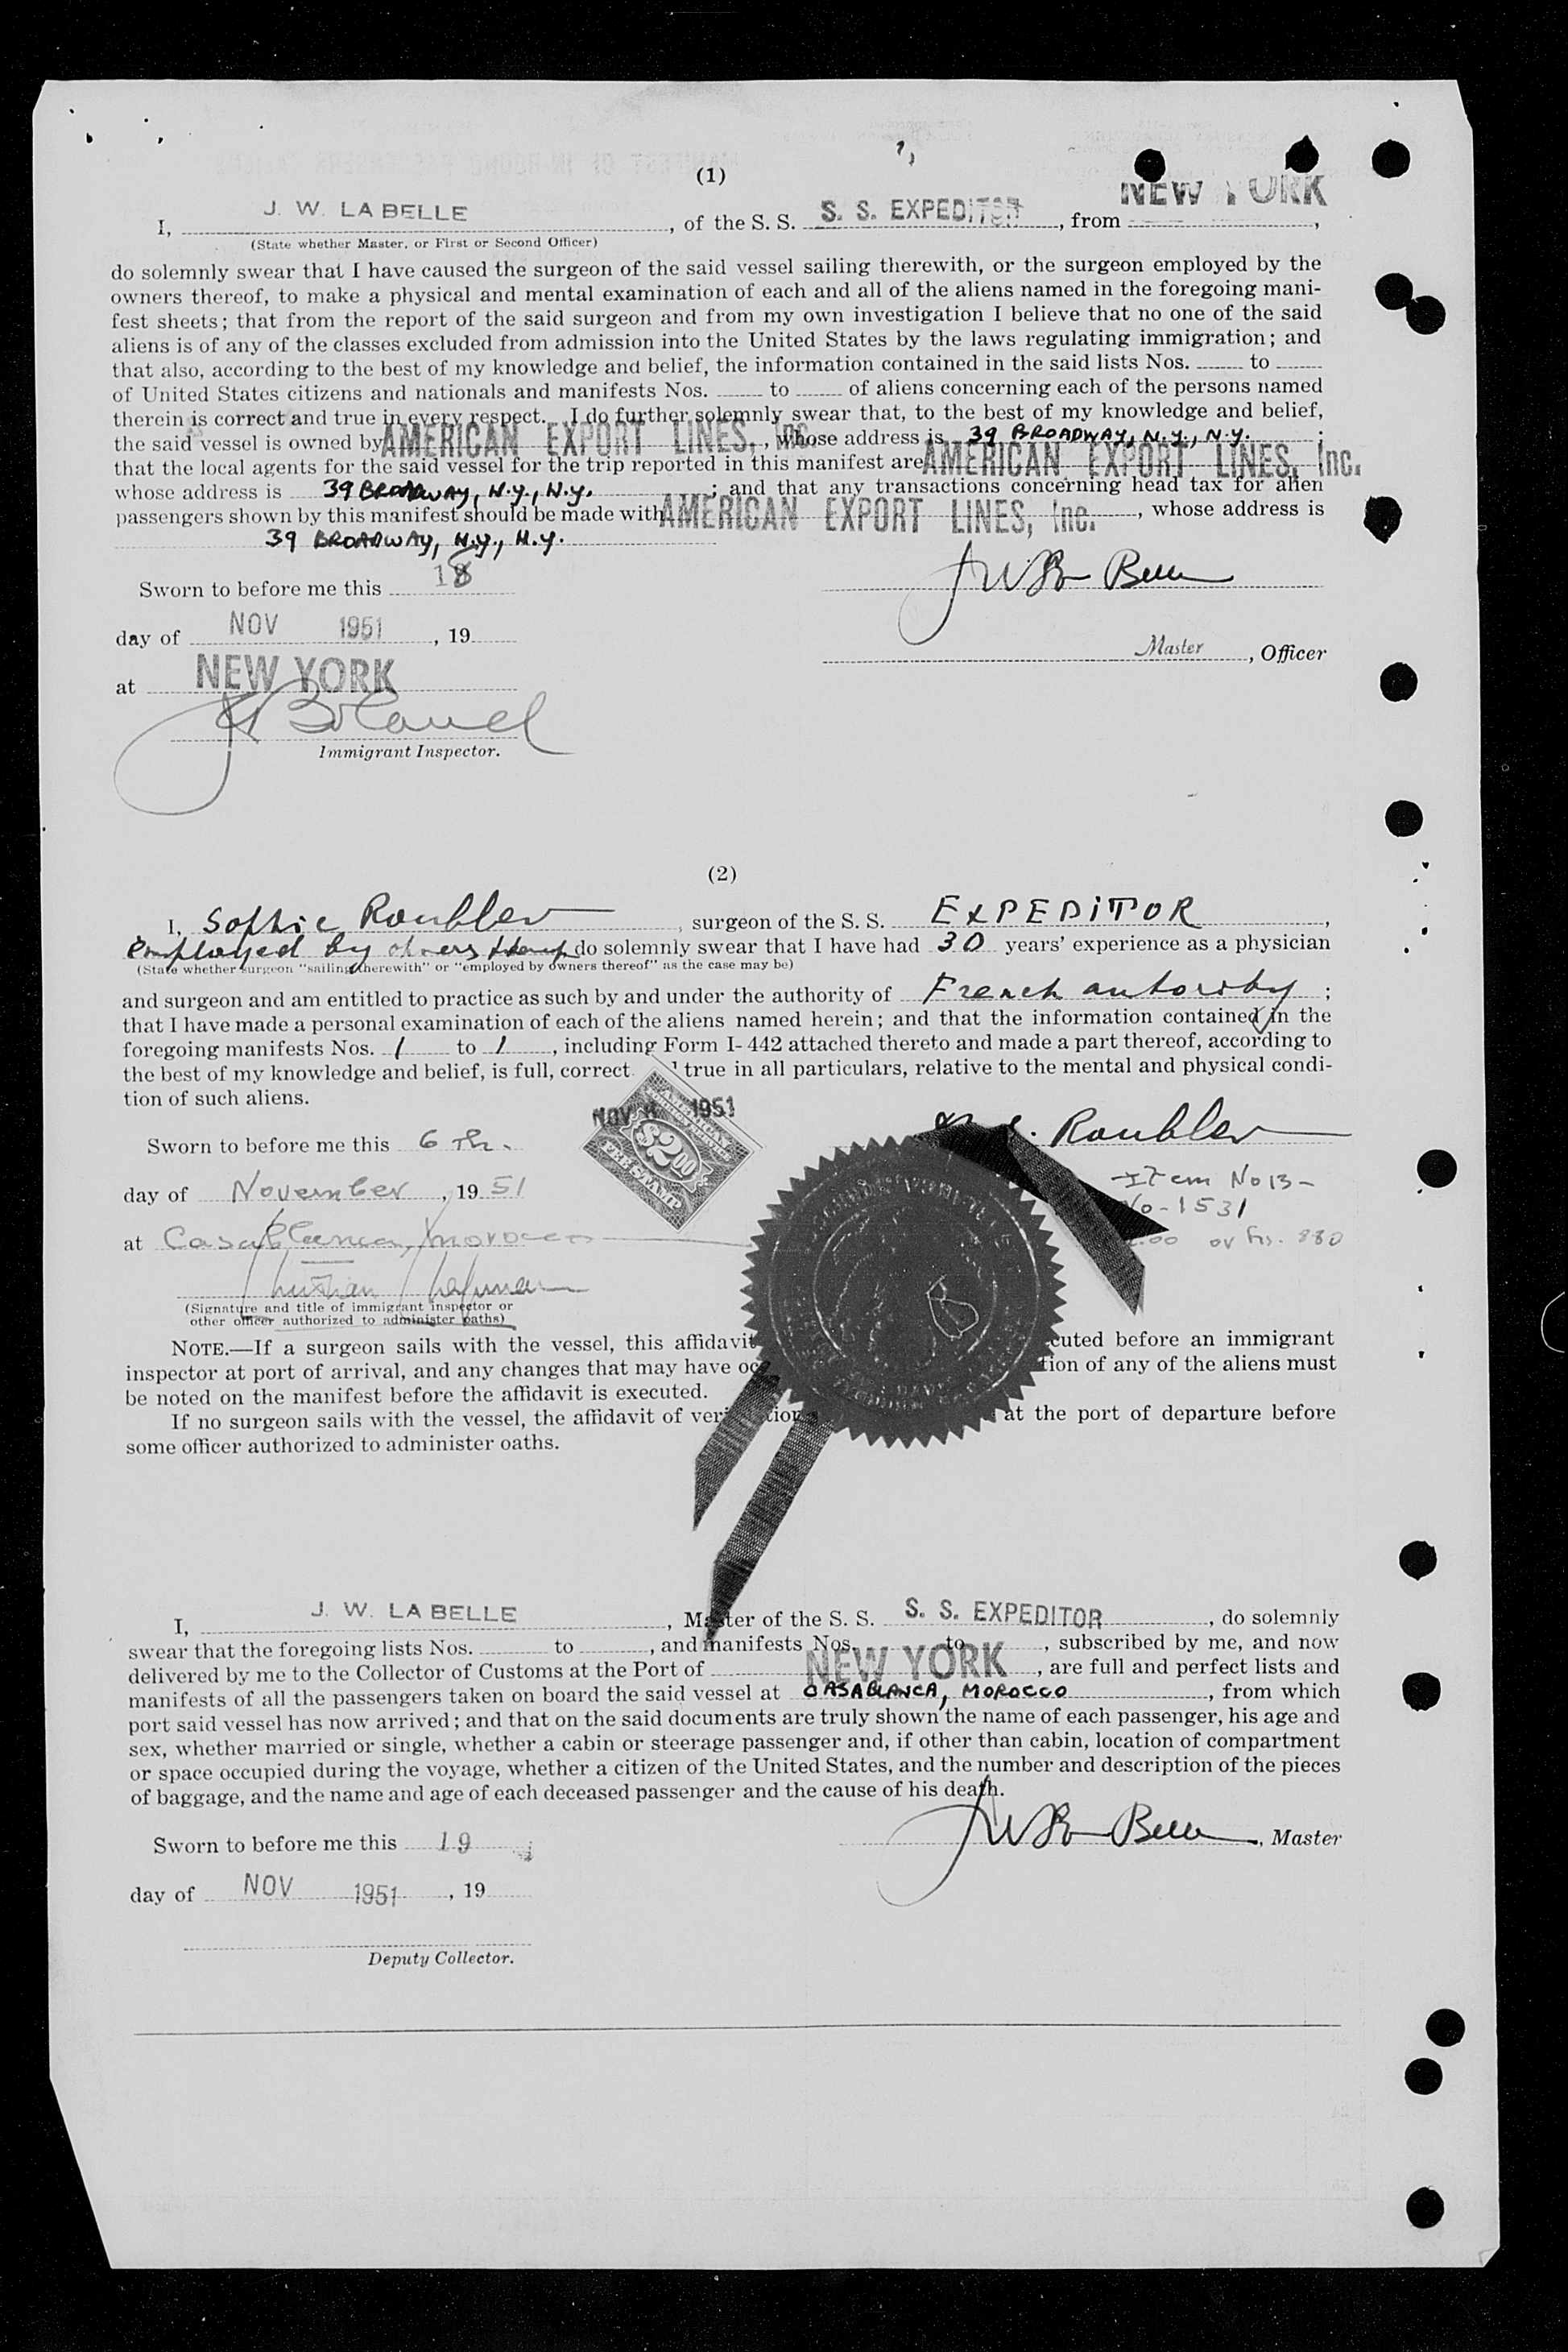 (1)
I, J. W. LA BELLE, of the S. S. S. S. EXPEDITOR, from NEW YORK,
(State whether Master, or First or Second Officer)
do solemnly swear that I have caused the surgeon of the said vessel sailing therewith, or the surgeon employed by the
owners thereof, to make a physical and mental examination of each and all of the aliens named in the foregoing mani-
fest sheets; that from the report of the said surgeon and from my own investigation I believe that no one of the said
aliens is of any of the classes excluded from admission into the United States by the laws regulating immigration; and
that also, according to the best of my knowledge and belief, the information contained in the said lists Nos. ........ to ........
of United States citizens and nationals and manifests Nos. ........ to ........ of aliens concerning each of the persons named
therein is correct and true in every respect. I do further solemnly swear that, to the best of my knowledge and belief,
the said vessel is owned by AMERICAN EXPORT LINES, Inc., whose address is 39 BROADWAY, N.Y., N.Y. ;
that the local agents for the said vessel for the trip reported in this manifest are AMERICAN EXPORT LINES, Inc.
whose address is 39 BROADWAY, N.Y., N.Y. ; and that any transactions concerning head tax for alien
passengers shown by this manifest should be made with AMERICAN EXPORT LINES, Inc., whose address is
39 BROADWAY, N.Y., N.Y.
Sworn to before me this 18
J W La Belle
day of NOV 1951, 19
Master, Officer
at NEW YORK
Boland
Immigrant Inspector.
(2)
I, Sophie Roublev, surgeon of the S. S. EXPEDITOR,
employed by owners do solemnly swear that I have had 30 years' experience as a physician
(State whether surgeon "sailing therewith" or "employed by owners thereof" as the case may be)
and surgeon and am entitled to practice as such by and under the authority of French ;
that I have made a personal examination of each of the aliens named herein; and that the information contained in the
foregoing manifests Nos. 1 to 1, including Form I-442 attached thereto and made a part thereof, according to
the best of my knowledge and belief, is full, correct true in all particulars, relative to the mental and physical condi-
tion of such aliens.
NOV 1951
$2.00
FEE STAMP
Roublev
Sworn to before me this 6 th.
Item No 13-
day of November, 1951
No-1531
at Casablanca, Morocco
.00 or frs. 880
(Signature and title of immigrant inspector or
other officer authorized to administer oaths)
NOTE.—If a surgeon sails with the vessel, this affidavit cuted before an immigrant
inspector at port of arrival, and any changes that may have oc tion of any of the aliens must
be noted on the manifest before the affidavit is executed.
If no surgeon sails with the vessel, the affidavit of veri tion at the port of departure before
some officer authorized to administer oaths.
I, J. W. LA BELLE, Master of the S. S. S. S. EXPEDITOR, do solemnly
swear that the foregoing lists Nos. ........ to ........, and manifests Nos. ........ to ........, subscribed by me, and now
delivered by me to the Collector of Customs at the Port of NEW YORK, are full and perfect lists and
manifests of all the passengers taken on board the said vessel at CASABLANCA, MOROCCO, from which
port said vessel has now arrived; and that on the said documents are truly shown the name of each passenger, his age and
sex, whether married or single, whether a cabin or steerage passenger and, if other than cabin, location of compartment
or space occupied during the voyage, whether a citizen of the United States, and the number and description of the pieces
of baggage, and the name and age of each deceased passenger and the cause of his death.
Sworn to before me this 19
J W La Belle, Master
day of NOV 1951, 19
Deputy Collector.